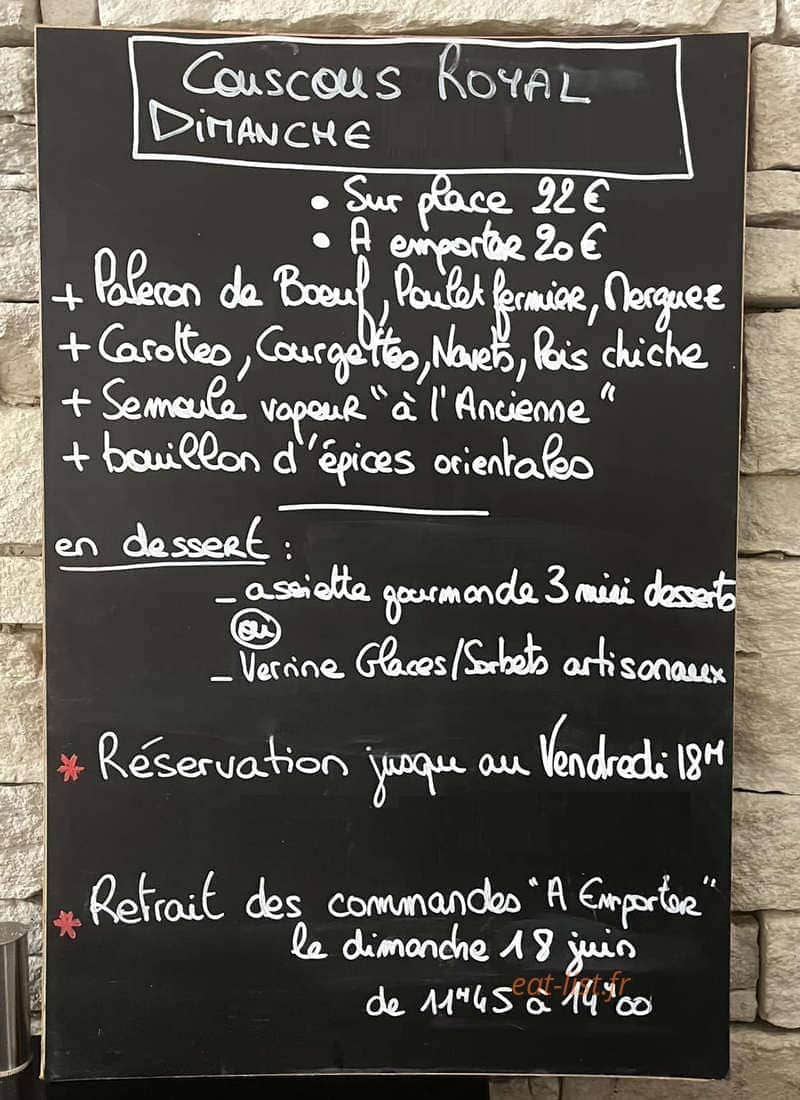 Couscous ROYAL
DIMANCHE
• Sur place 22 €
• A emporter 20 €
+ Paleron de Boeuf, Poulet fermier, Merguez
+ Carottes, Courgettes, Navets, Pois chiche
+ Semoule vapeur "à l'Ancienne"
+ bouillon d'épices orientales
en dessert :
- assiette gourmande 3 mini desserts
ou
- Verrine Glaces/Sorbets artisanaux
* Réservation jusqu au Vendredi 18H
* Retrait des commandes "A Emporter"
le dimanche 18 juin
de 11H45 à 14H00
eat-list.fr